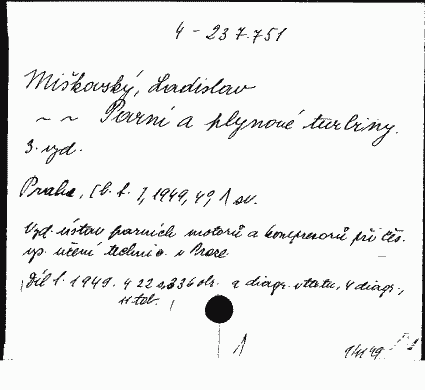 4 - 237.751
Miškovský, Ladislav
~ ~ Parní a plynové turbiny.
3. vyd.
Praha, [b. t.], 1949, 4°, 1 sv.
Vyd. ústav parních motorů a kompresorů při Čes.
vys. učení technic. v Praze
Díl 1. 1949. 4 336 str. diagr. v textu, 4 diagr.,
11 tab.
1